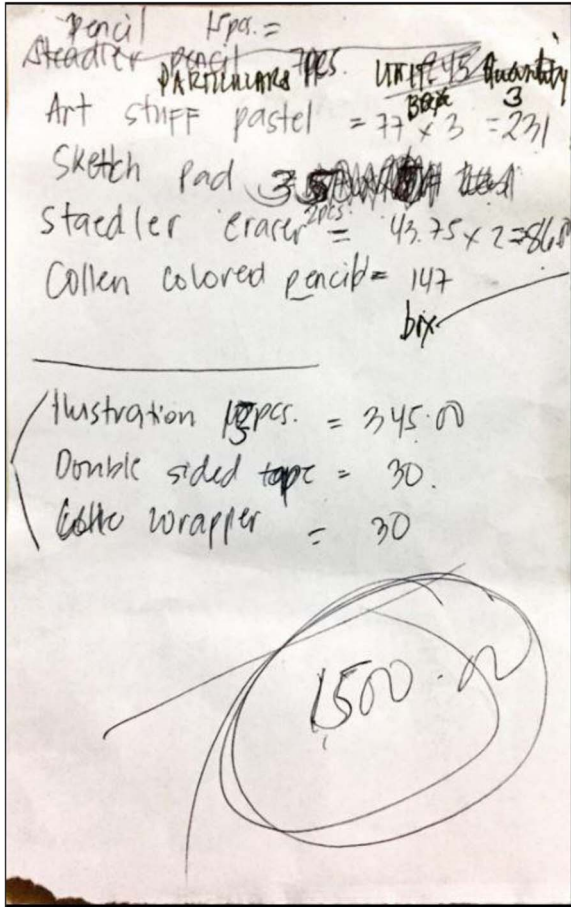 Pencil 15pcs. =
Steadler pencil 7pcs. 245
PARTICULARS UNIT Quantity
Box 3
Art stuff pastel = 77 x 3 = 231
Sketch Pad 3
Staedler eracer 2pcs. = 43.75 x 2 =
Collen colored pencil = 147
box
Ilustration pcs. = 345.00
Double sided tape = 30.
wrapper = 30
1500.00